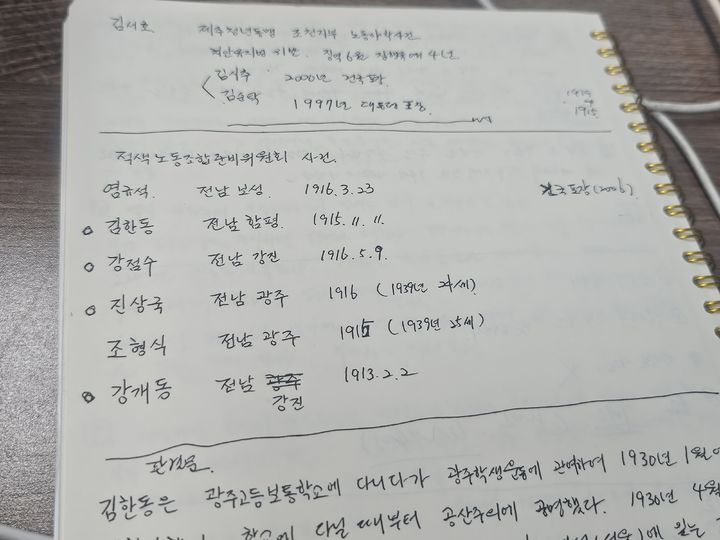 김시호 제주청년동맹 조천지부 노동야학사건
치안유지법 위반. 징역 6월 집행유예 4년
김시추 2000년 건국포장
김순탁 1997년 대통령 표창
적색노동조합준비위원회 사건.
염규석. 전남 보성. 1916.3.23 건국포장(2006)
김한동 전남 함평. 1915.11.11.
강점수 전남 강진 1916.5.9.
진상국 전남 광주 1916 (1939년 24세)
조형식 전남 광주 1915 (1939년 25세)
강개동 전남 광주 1913.2.2
강진
판결문.
김한동은 광주고등보통학교에 다니다가 광주학생운동에 관여하여 1930년 1월
다닐 때부터 공산주의에 공명했다. 1930년 4월